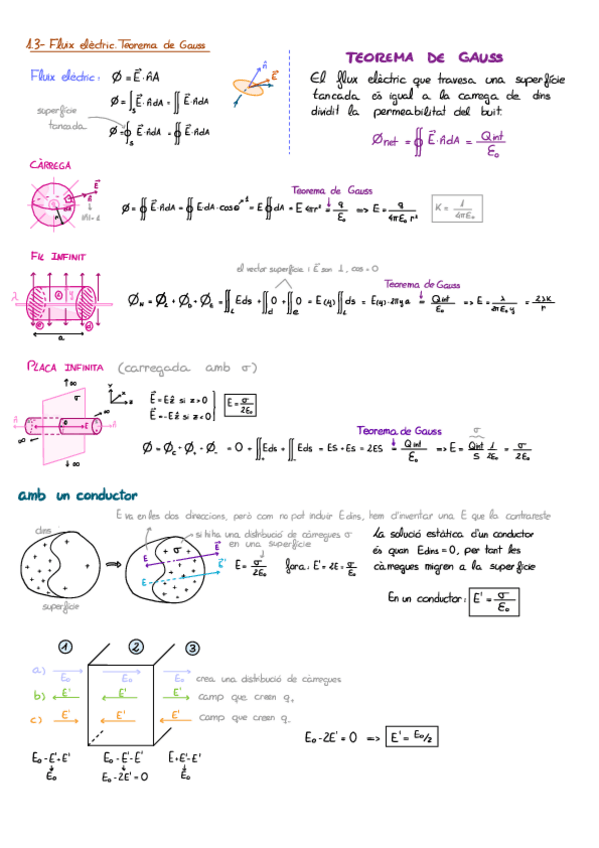 1.3- Flux elèctric. Teorema de Gauss
Flux elèctric: Ø = E⃗·n̂A
n̂
E⃗
Ø = ∫s E⃗·n̂dA = ∬ E⃗·n̂dA
superfície tancada
Ø = ∮s E⃗·n̂dA = ∯ E⃗·n̂dA
TEOREMA DE GAUSS
El flux elèctric que travesa una superfície
tancada és igual a la carrega de dins
dividit la permeabilitat del buit.
Ønet = ∯ E⃗·n̂dA = Qint/ε₀
CÀRREGA
Teorema de Gauss
Ø = ∯ E⃗·n̂dA = ∯ E·dA·cosθ 1 = E∮dA = E 4πr² = q/ε₀ => E = q/4πε₀ r²
K = 1/4πε₀
FIL INFINIT
el vector superfície i E són ⊥, cos = 0
Teorema de Gauss
λ
ØN = ØL + ØD + ØE = ∬L Eds + ∬d 0 + ∬e 0 = E(y)∬L ds = E(y)·2πya = Qint/ε₀ => E = λ/2πε₀y = 2λK/r
a
PLACA INFINITA (carregada amb σ)
↑∞
σ
∞
∞
↓∞
Y
X
Z
E⃗ = Eẑ si z>0
E⃗ = -Eẑ si z<0
E = σ/2ε₀
Teorema de Gauss
σ
Ø = ØC + Ø+ + Ø- = 0 + ∬+ Eds + ∬- Eds = ES + ES = 2ES = Qint/ε₀ => E = Qint/S 1/2ε₀ = σ/2ε₀
amb un conductor
E va en les dos direccions, però com no pot incluir Edins, hem d'inventar una E que la contrareste
dins
si hi ha una distribució de càrregues σ
en una superfície
superfície
σ
E
E⃗'
E
E = σ/2ε₀ fora: E' = 2E = σ/ε₀
La solució estàtica d'un conductor
és quan Edins = 0, per tant les
càrregues migren a la superfície
En un conductor: E' = σ/ε₀
1 2 3
a) E₀ E₀ E₀ crea una distribució de càrregues
b) E' E' E' camp que creen q+
c) E' E' E' camp que creen q-
E₀-2E' = 0 => E' = E₀/2
E₀-E'+E' E₀-E'-E' E+E'-E'
E₀ E₀-2E'=0 E₀